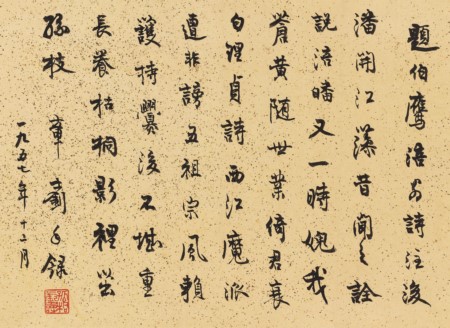 題伯鷹涪翁詩注後
潘開江藻昔聞之詮
說涪皤又一時媿我
蒼黃隨世業倚君衰
白理貞詩西江魔派
遭非謗五祖宗風賴
護持爨後不堪重
長養枯桐影裡茁
孫枝 章 手錄
一九五七年十二月